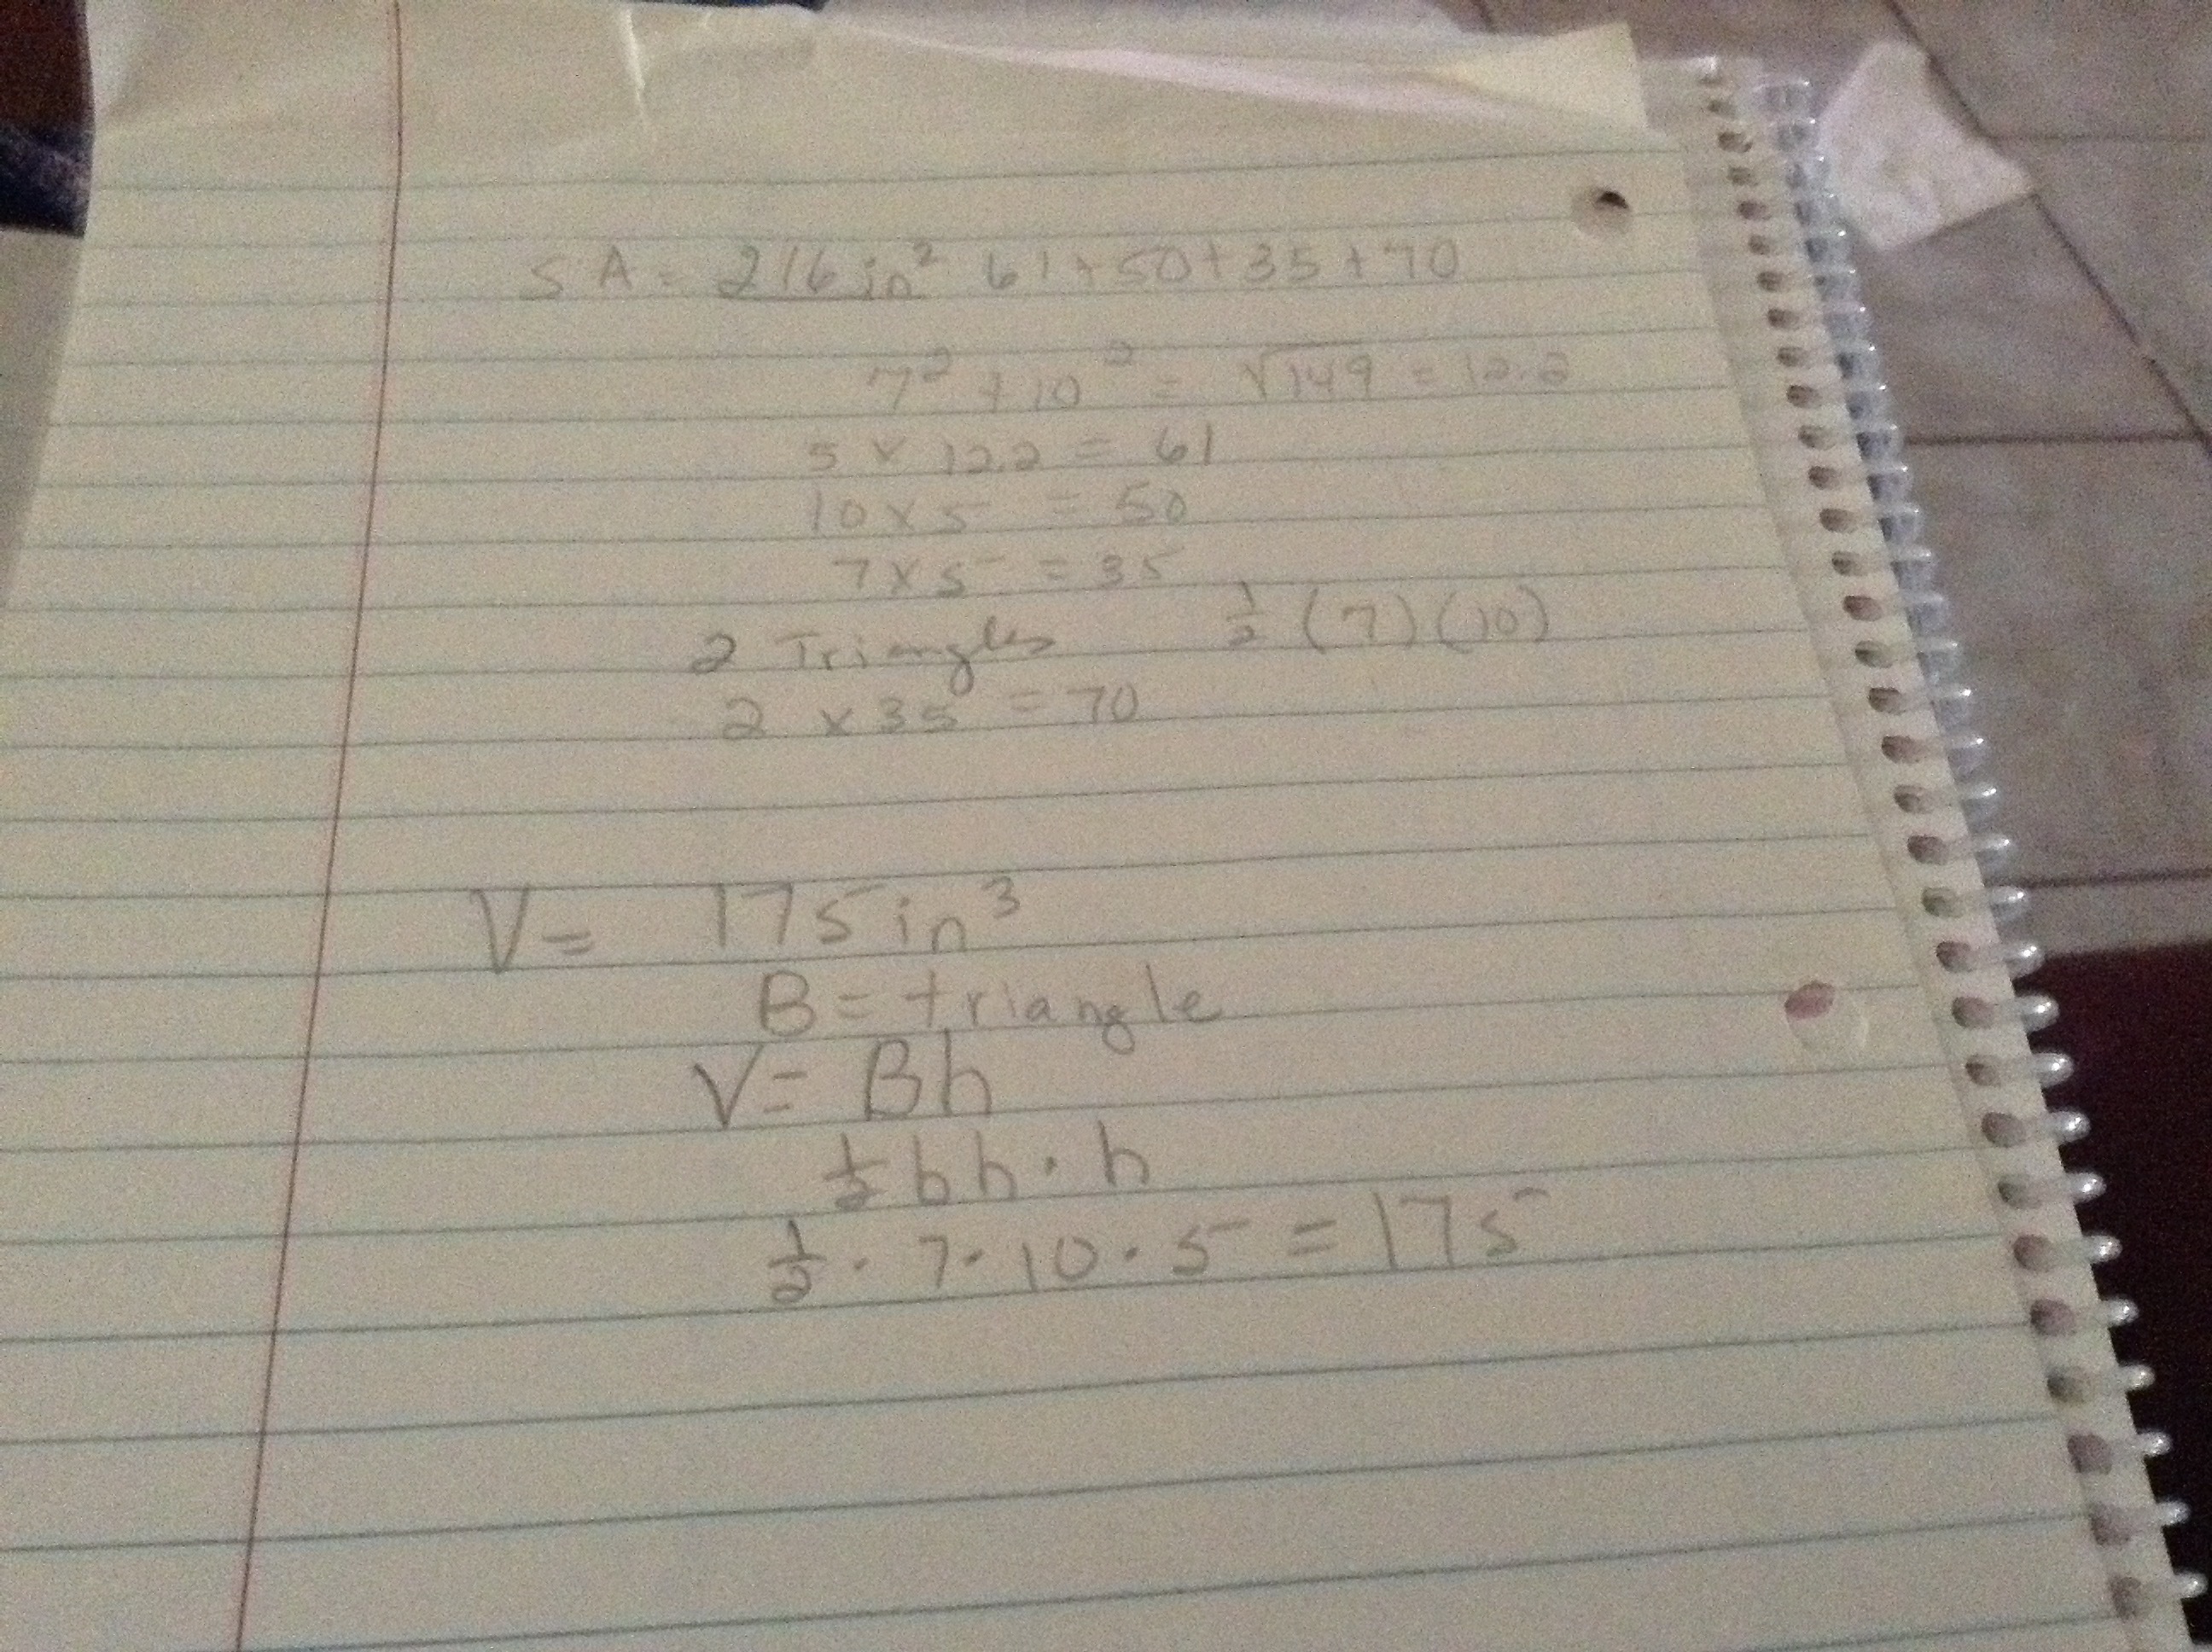 SA = 216 in² 61+50+35+70
7² + 10² = √149 = 12.2
5 x 12.2 = 61
10 x 5 = 50
7 x 5 = 35
2 Triangles ½ (7)(10)
2 x 35 = 70
V = 175 in³
B = triangle
V = Bh
½ bh · h
½ · 7 · 10 · 5 = 175